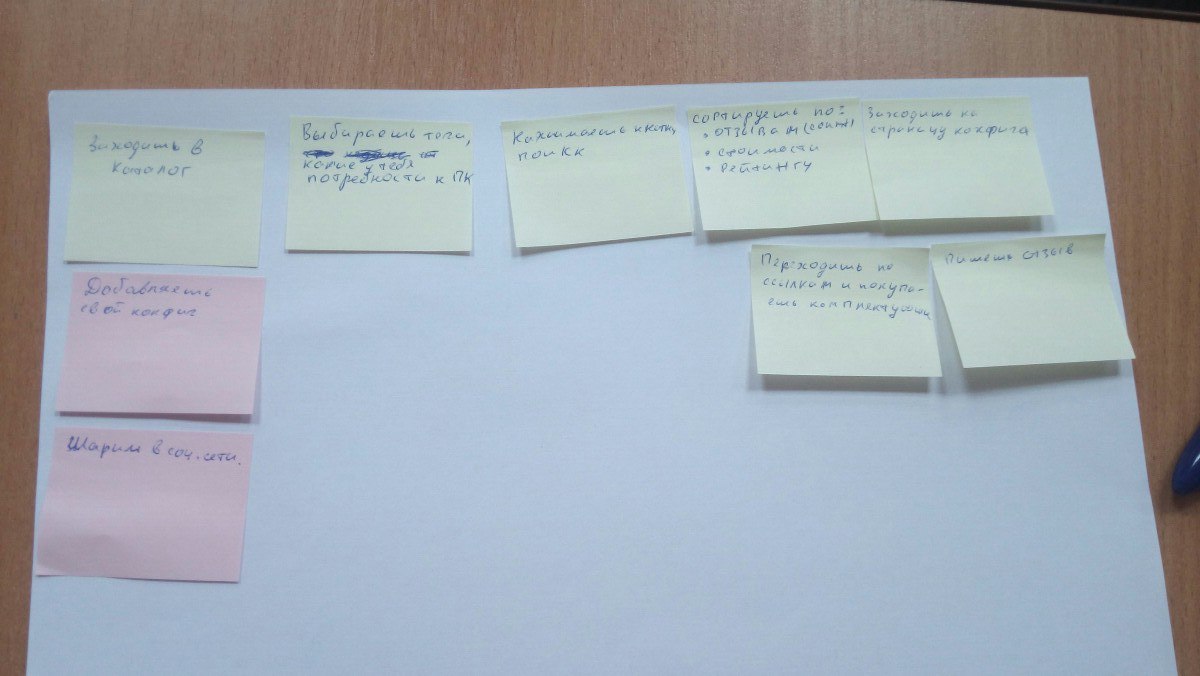 Заходишь в
каталог
Выбираешь теги,
какие у тебя
потребности к ПК
Нажимаешь кнопку
поиКК
сортируешь по:
• отзывам
• стоимости
• рейтингу
Заходишь на
страницу конфига
Переходишь по
ссылкам и покупа-
ешь комплектующи
Пишешь отзыв
Добавляешь
свой конфиг
Шарим в соц. сети.